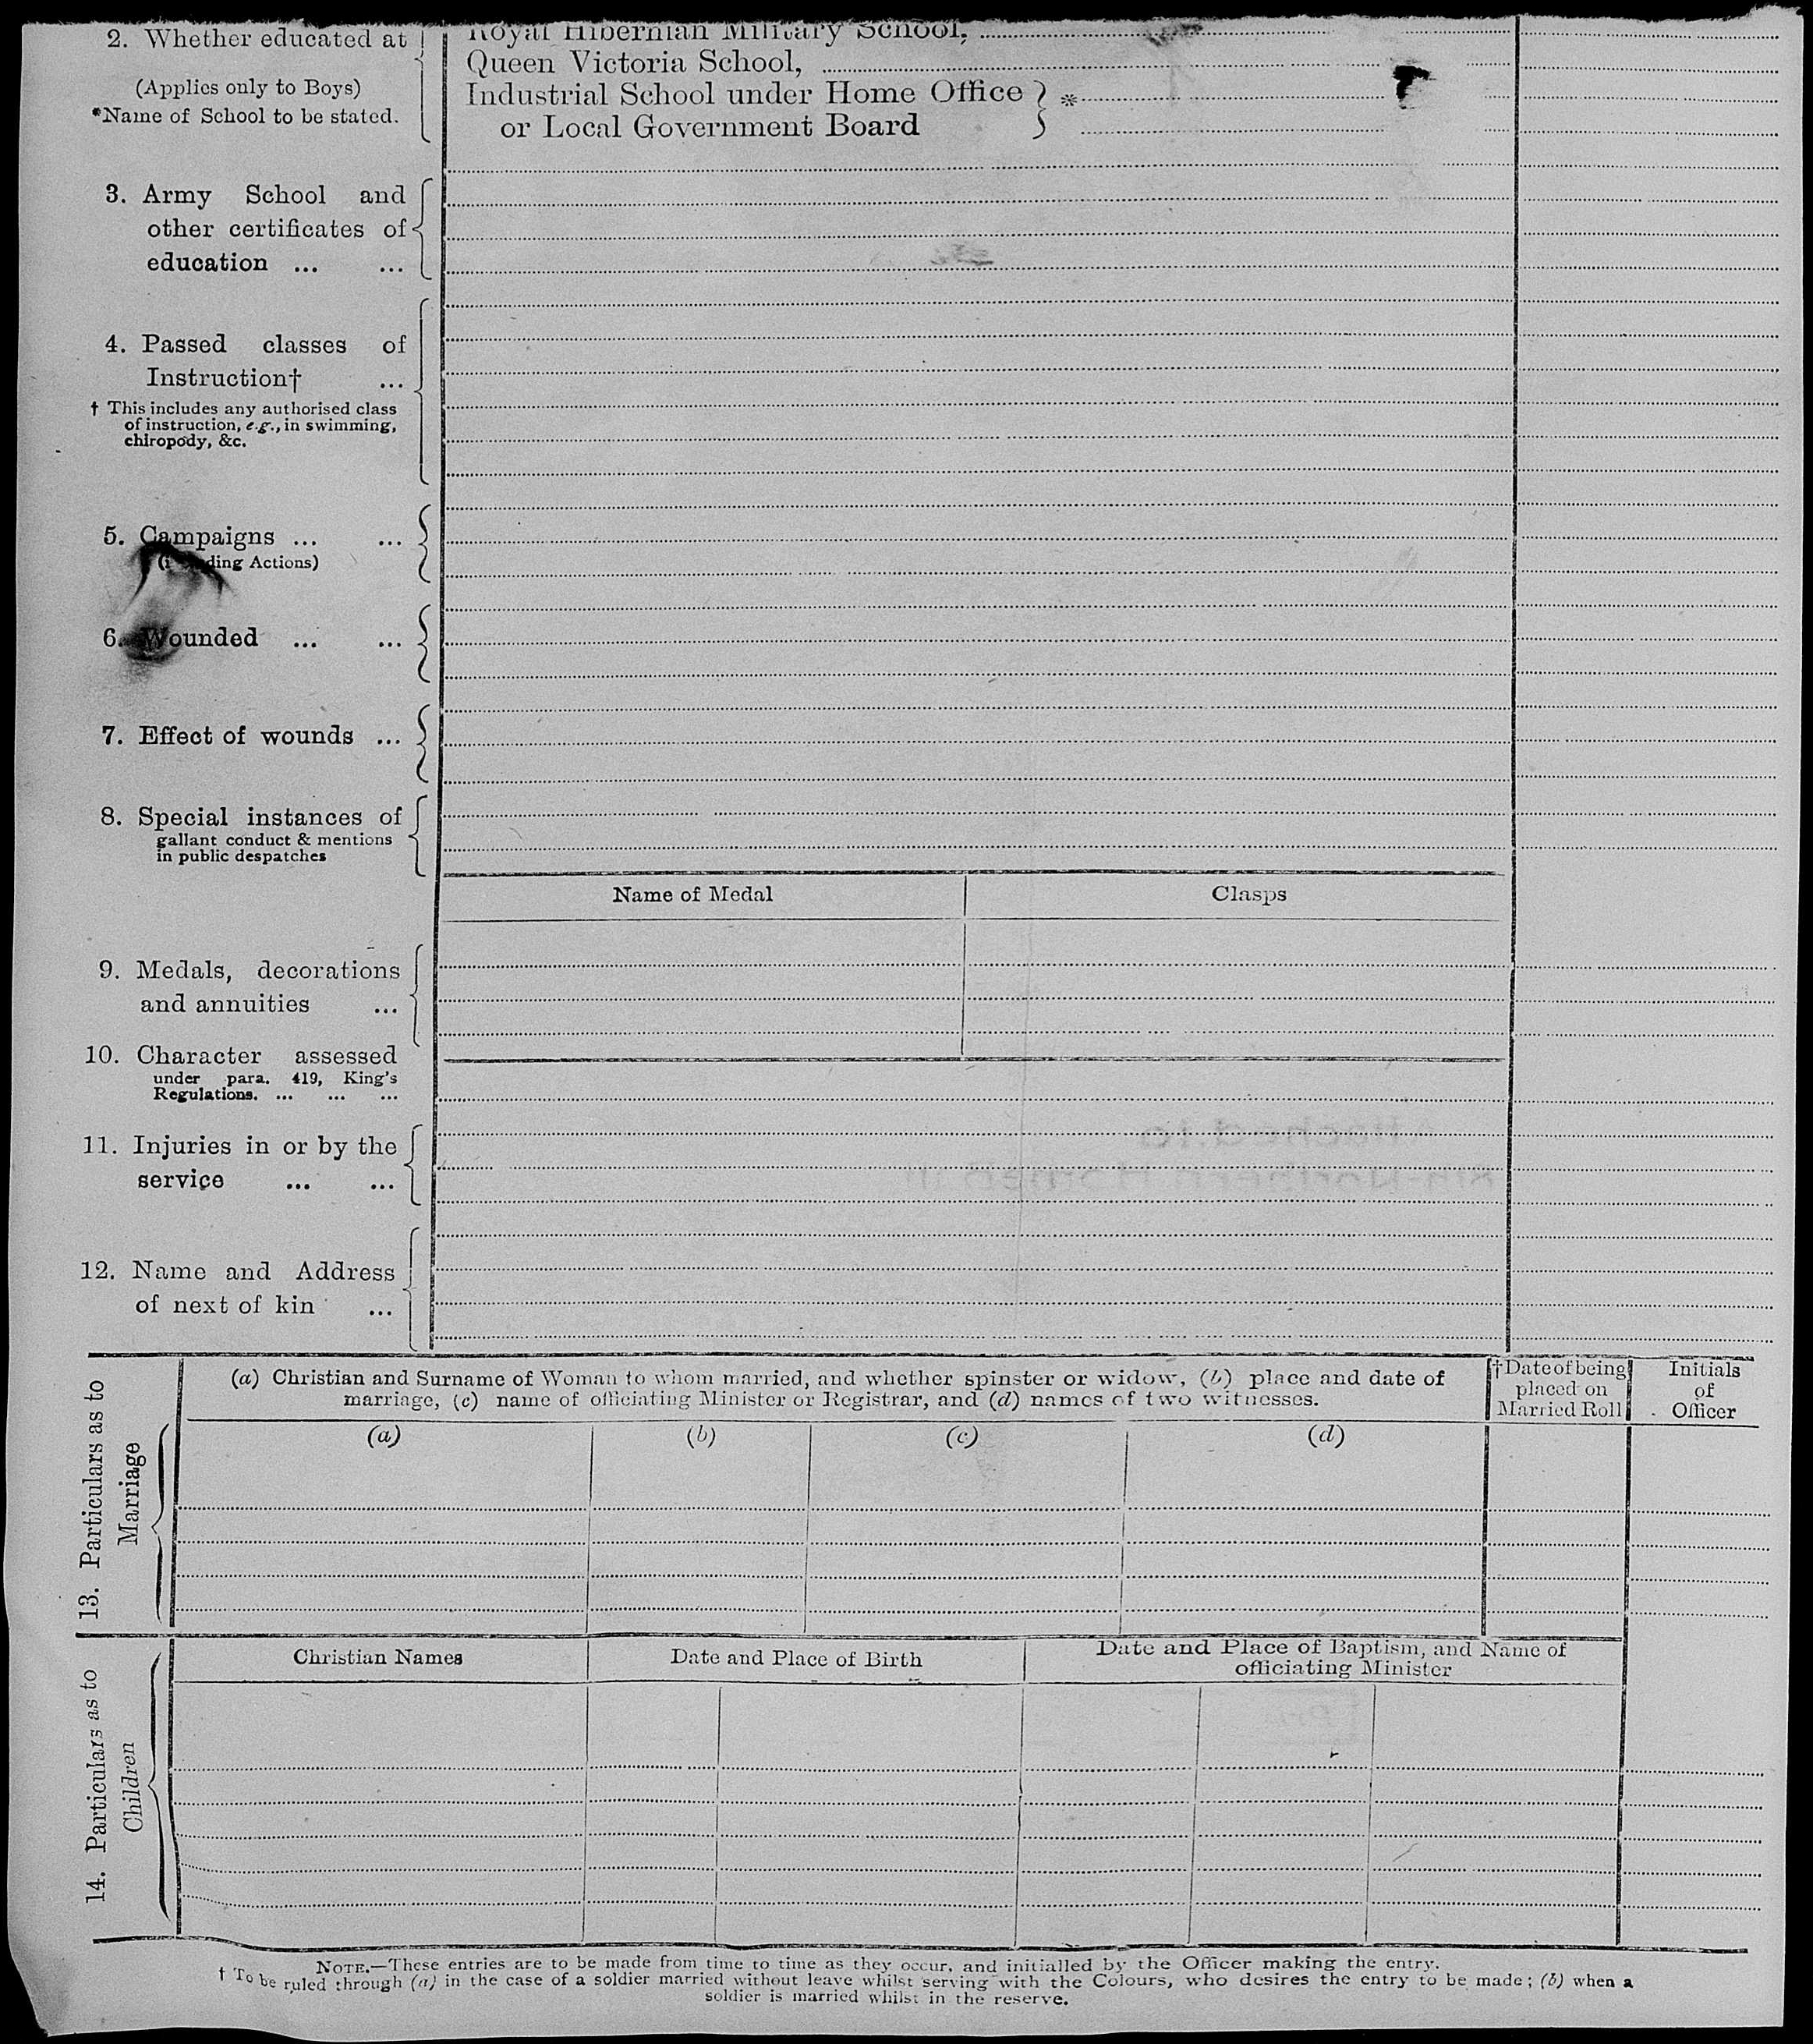 2. Whether educated at
(Applies only to Boys)
*Name of School to be stated.
Royal Hibernian Military School,
Queen Victoria School,
Industrial School under Home Office
or Local Government Board
*
3. Army School and
other certificates of
education ... ...
4. Passed classes of
Instruction† ...
† This includes any authorised class
of instruction, e.g., in swimming,
chiropody, &c.
5. Campaigns ... ...
ding Actions)
6. Wounded ... ...
7. Effect of wounds ...
8. Special instances of
gallant conduct & mentions
in public despatches
Name of Medal Clasps
9. Medals, decorations
and annuities ...
10. Character assessed
under para. 419, King's
Regulations. ... ... ...
11. Injuries in or by the
service ... ...
12. Name and Address
of next of kin ...
13. Particulars as to
Marriage
(a) Christian and Surname of Woman to whom married, and whether spinster or widow, (b) place and date of
marriage, (c) name of officiating Minister or Registrar, and (d) names of two witnesses.
†Date of being
placed on
Married Roll
Initials
of
Officer
(a) (b) (c) (d)
14. Particulars as to
Children
Christian Names Date and Place of Birth
Date and Place of Baptism, and Name of
officiating Minister
NOTE.—These entries are to be made from time to time as they occur, and initialled by the Officer making the entry.
† To be ruled through (a) in the case of a soldier married without leave whilst serving with the Colours, who desires the entry to be made; (b) when a
soldier is married whilst in the reserve.